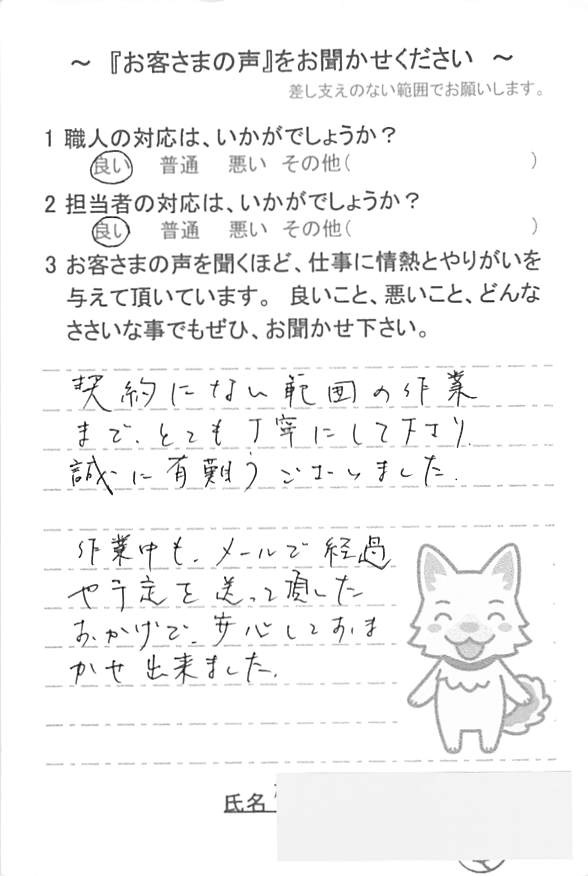 ~ 『お客さまの声』をお聞かせください ~
差し支えのない範囲でお願いします。
1 職人の対応は、いかがでしょうか?
良い 普通 悪い その他( )
2 担当者の対応は、いかがでしょうか?
良い 普通 悪い その他( )
3 お客さまの声を聞くほど、仕事に情熱とやりがいを
与えて頂いています。 良いこと、悪いこと、どんな
ささいな事でもぜひ、お聞かせ下さい。
契約にない範囲の作業
まで、とても丁寧にして下さり、
誠に有難うございました。
作業中も、メールで経過
や予定を送って頂した
おかげで、安心しておま
かせ出来ました。
氏名